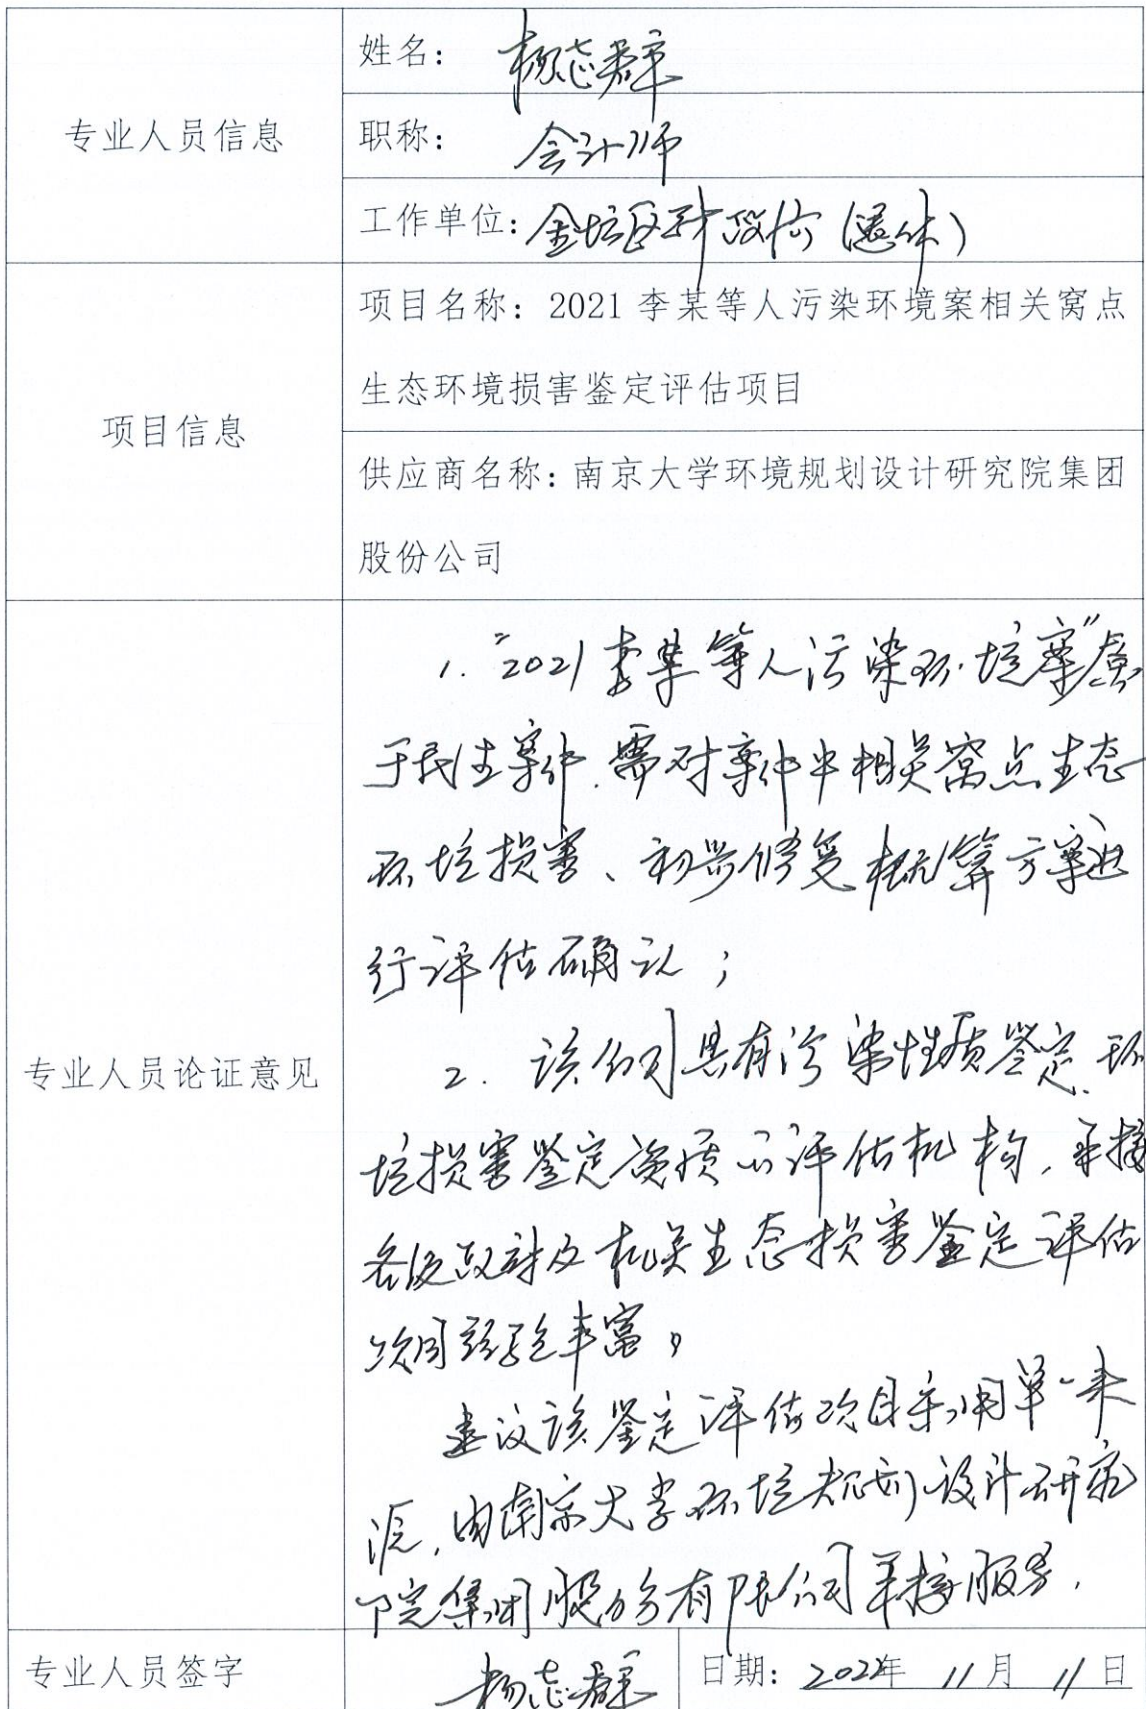 专业人员信息
姓名: 杨志群
职称: 会计师
工作单位: 金坛区财政局(退休)
项目信息
项目名称: 2021李某等人污染环境案相关窝点
生态环境损害鉴定评估项目
供应商名称: 南京大学环境规划设计研究院集团
股份公司
专业人员论证意见
1. “2021李某等人污染环境案”属
于民生案件.需对案件中相关窝点生态
环境损害、初步修复概算方案进
行评估确认;
2. 该公司具有污染性质鉴定、环
境损害鉴定资质的评估机构,承接
各级政府及机关生态损害鉴定评估
项目经验丰富。
建议该鉴定评估项目采用单一来
源,由南京大学环境规划设计研究
院集团股份有限公司承接服务.
专业人员签字
杨志群
日期: 2022年 11月 11日